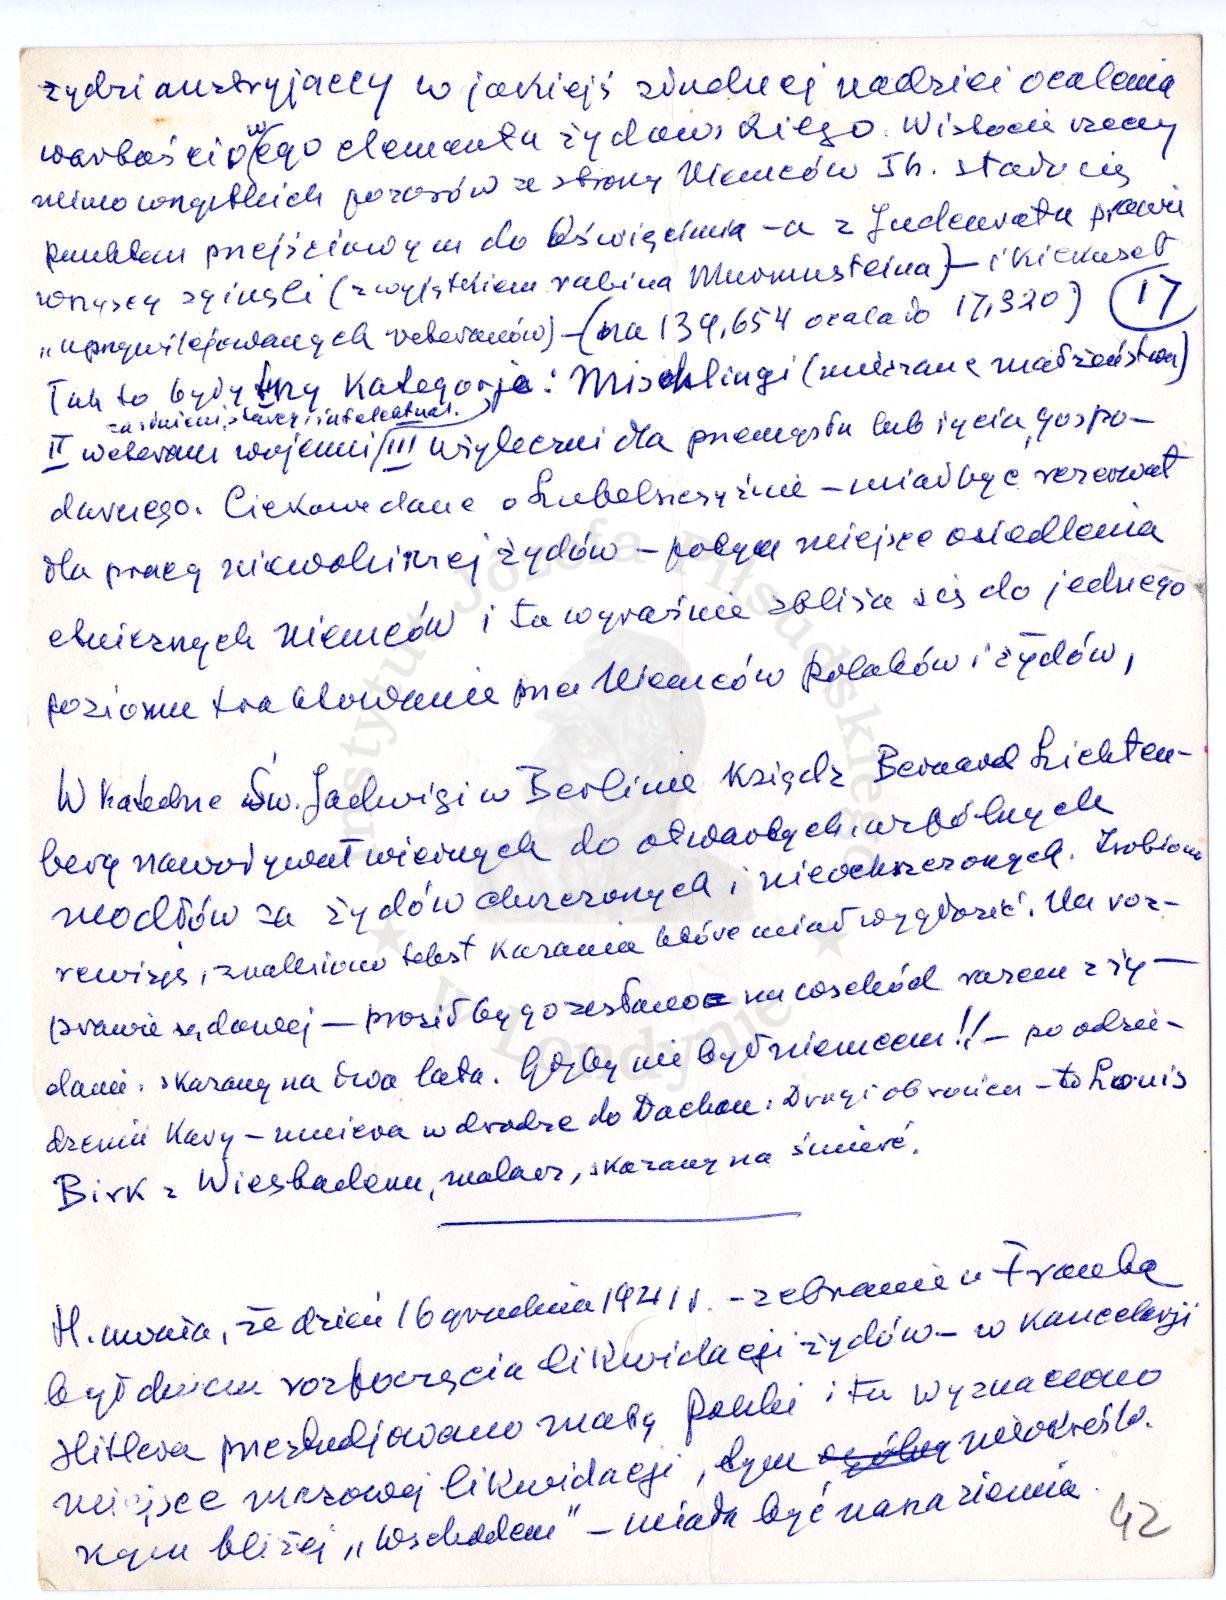 żydzi austryjaccy w jakiejś złudnej nadziei ocalenia
wartościowego elementu żydowskiego. W istocie rzeczy
mimo wszystkich pozorów ze strony Niemców Th. stał się
punktem przejściowym do Oświęcimia – a z Judenratu prawie
wszyscy zginęli (z wyjątkiem rabina Murmusteina) – i kilkuset
"uprzywilejowanych weteranów) – (na 139,654 ocalało 17,320) 17
Tak to były trzy kategorje: Mischlingi (mieszane małżeństwa)
zasłużeni, starcy i intelektual.
II weterani wojenni / III użyteczni dla przemysłu lub życia gospo-
darczego. Ciekawe dane o Lubelszczyźnie – miał być rezerwat
dla pracy niewolniczej żydów – potym miejsce osiedlenia
etnicznych niemców i tu wyraźnie zbliża się do jednego
poziomu traktowanie przez Niemców Polaków i żydów,
W katedrze Św. Jadwigi w Berlinie Ksiądz Bernard Lichten-
berg nawoływał wiernych do otwartych wspólnych
modłów za żydów chrzczonych i nieochrzczonych. Zrobiono
rewizję, znaleziono tekst kazania które miał wygłosić. Na roz-
prawie sądowej – prosił by go zesłano na wschód razem z ży-
dami. skazany na dwa lata. Gdyby nie był niemcem!! – po odsie-
dzeniu kary – umiera w drodze do Dachau. Drugi obrońca – to Louis
Birk z Wiesbadenu, malarz, skazany na śmierć.
H. uważa, że dzień 16 grudnia 1941 r. – zebranie u Franka
był dniem rozpoczęcia likwidacji żydów – w Kancelarji
Hitlera przestudjowano mapę Polski i tu wyznaczono
miejsce masowej likwidacji, tym nieokreślo-
nym bliżej "Wschodem" – miała być nasza ziemia.
42
Instytut Józefa Piłsudskiego
w Londynie